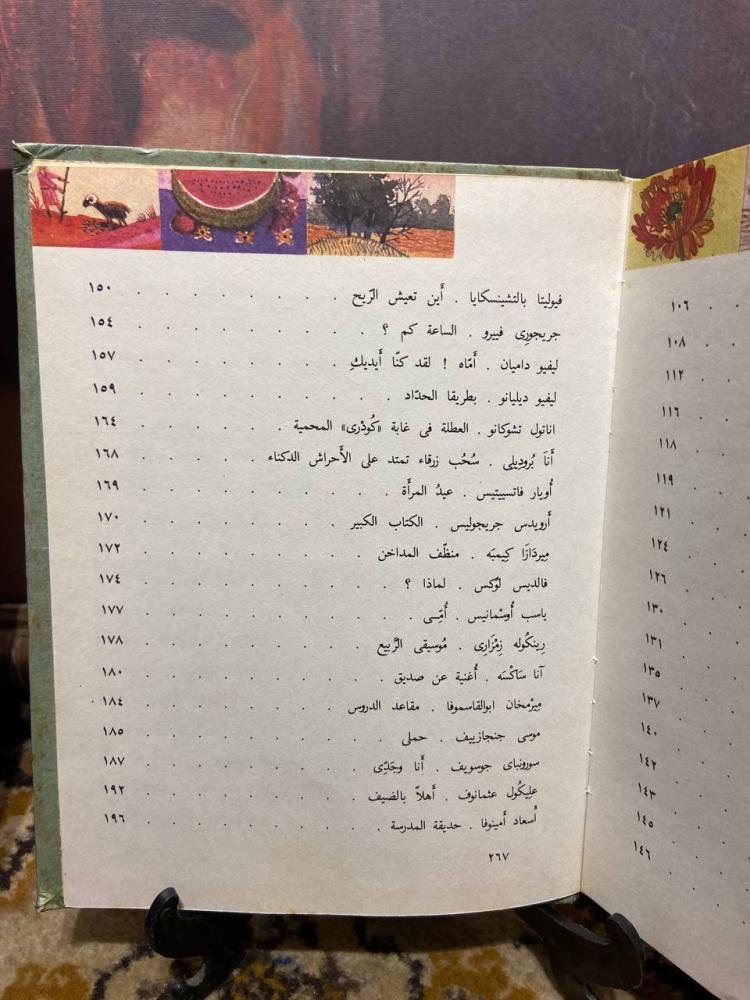 فيوليتا بالتشينسكايا . أَين تعيش الرّيح . . . . . . . . ١٥٠
جريجورى فييرو . الساعة كم ؟ . . . . . . . . ١٥٤
ليفيو داميان . أمّاه ! لقد كنّا أَيديكِ . . . . . . . . ١٥٧
ليفيو ديليانو . بطريقا الحدّاد . . . . . . . . ١٥٩
اناتول تشوكانو . العطلة فى غابة «كُودْرى» المحمية . . . . . . ١٦٤
أَناَ بُرودِيلى . سُحُب زرقاء تمتد على الأَحراش الدكناء . . . . . . ١٦٨
أُويار فاتسييتيس . عيدُ المرأَة . . . . . . . . ١٦٩
أَرويدس جريجوليس . الكتاب الكبير . . . . . . . . ١٧٠
مِيردَازَا كِيمبَه . منظّف المداخن . . . . . . . . ١٧٢
فالديس لوُكس . لماذا ؟ . . . . . . . . ١٧٤
ياسب أُوسْمانيس . أُمّــى . . . . . . . . ١٧٧
رِينكُوله زِمْزَارى . مُوسيقى الرَّبيع . . . . . . . . ١٧٨
آنا سَاكْسَه . أُغنية عن صديق . . . . . . . . ١٨٠
مِيرْمخان ابوالقاسموفا . مقاعد الدروس . . . . . . . . ١٨٤
موسى جنجازييف . حملى . . . . . . . . ١٨٥
سورونباى جوسويف . أَنا وجَدِّى . . . . . . . . ١٨٧
عليكُول عثمانوف . أَهلاً بالضيف . . . . . . . . ١٩٢
أُسعاد أَمينوفا . حديقة المدرسة . . . . . . . . ١٩٦
٢٦٧
١٠٦
١٠٨
١١٢
١١٦
١١٨
١١٩
١٢١
١٢٤
١٢٦
١٣٠
١٣١
١٣٥
١٣٧
١٤٠
١٤٢
١٤٣
١٤٥
١٤٦